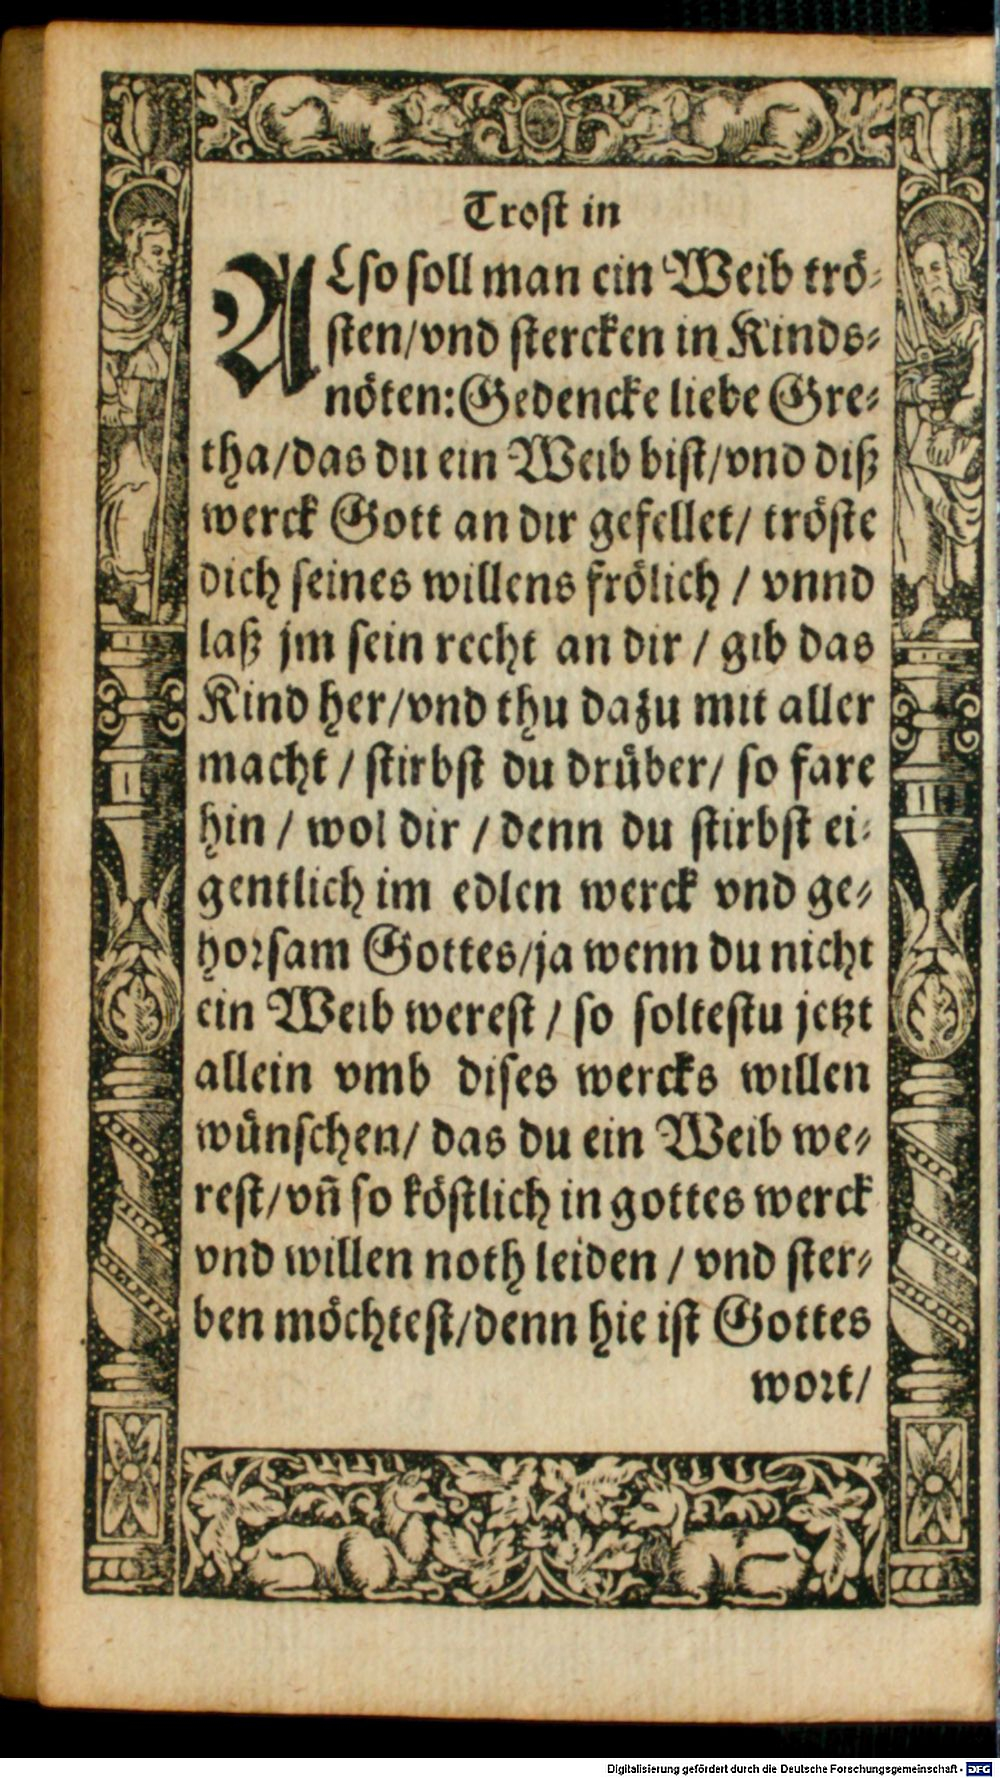 Trost in
ALso soll man ein Weib trö-
sten/vnd stercken in Kinds-
nöten:Gedencke liebe Gre-
tha/das du ein Weib bist/vnd diß
werck Gott an dir gefellet/ tröste
dich seines willens frölich / vnnd
laß jm sein recht an dir / gib das
Kind her/vnd thu dazu mit aller
macht / stirbst du drüber/ so fare
hin / wol dir / denn du stirbst ei-
gentlich im edlen werck vnd ge-
horsam Gottes/ja wenn du nicht
ein Weib werest / so soltestu jetzt
allein vmb dises wercks willen
wünschen/ das du ein Weib we-
rest/vñ so köstlich in gottes werck
vnd willen noth leiden / vnd ster-
ben möchtest/denn hie ist Gottes
wort/
Digitalisierung gefördert durch die Deutsche Forschungsgemeinschaft - DFG